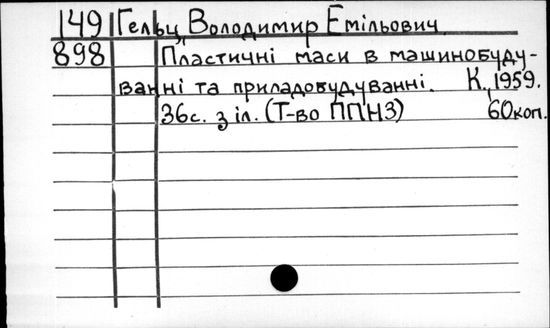 149 Гельц, Володимир Емільович
898 Пластичні маси в машинобуду-
ванні та приладобудуванні. К., 1959.
36с. з іл. (Т-во ППНЗ) 60коп.